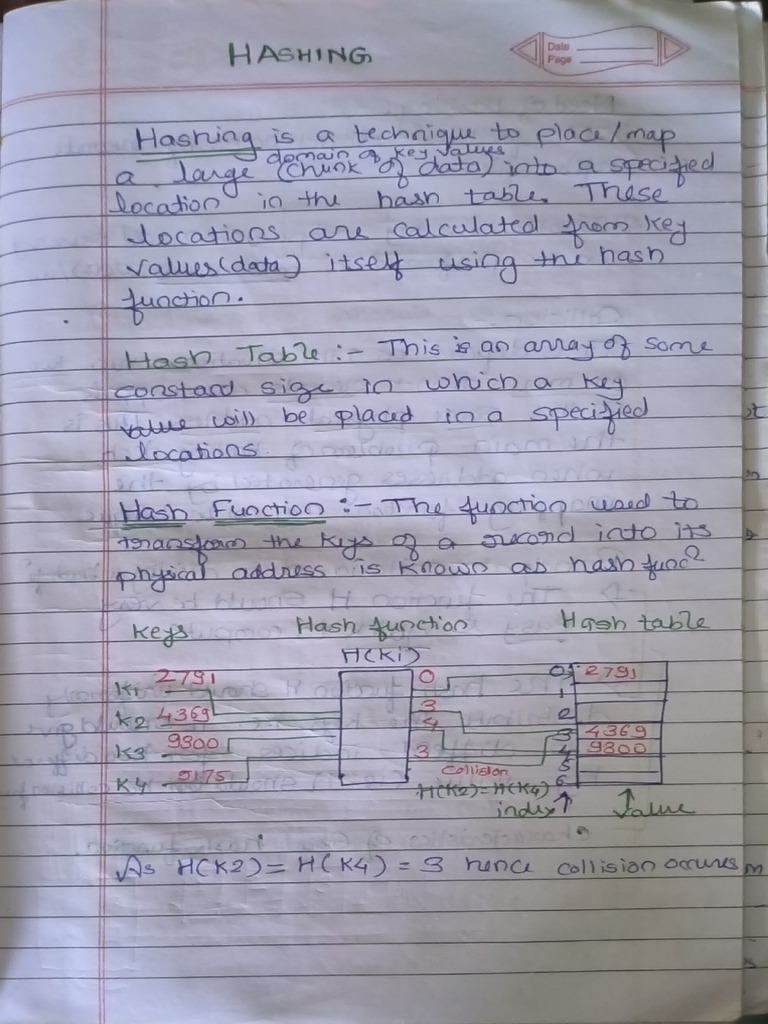 HASHING
Date
Page
Hashing is a technique to place/map
domain of key values
a large (chunk of data) into a specified
location in the hash table. These
locations are calculated from key
values(data) itself using the hash
function.
Hash Table :- This is an array of some
constant size in which a key
value will be placed in a specified
locations.
Hash Function :- The function used to
transform the keys of a record into its
physical address is known as hash funcⁿ
Keys Hash function Hash table
H(Ki)
K1 2791 0 0 2791
1
K2 4369 3 2
4 3 4369
K3 9800 4 9800
3 5
K4 5175 Collision 6
H(K2)=H(K4)
index↑ ↑value
As H(K2) = H(K4) = 3 hence collision occures